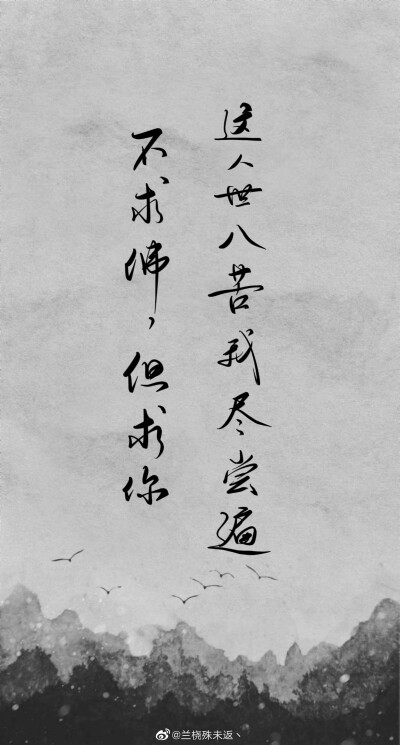 这人世八苦我尽尝遍
不求佛，但求你
@兰桡殊未返丶